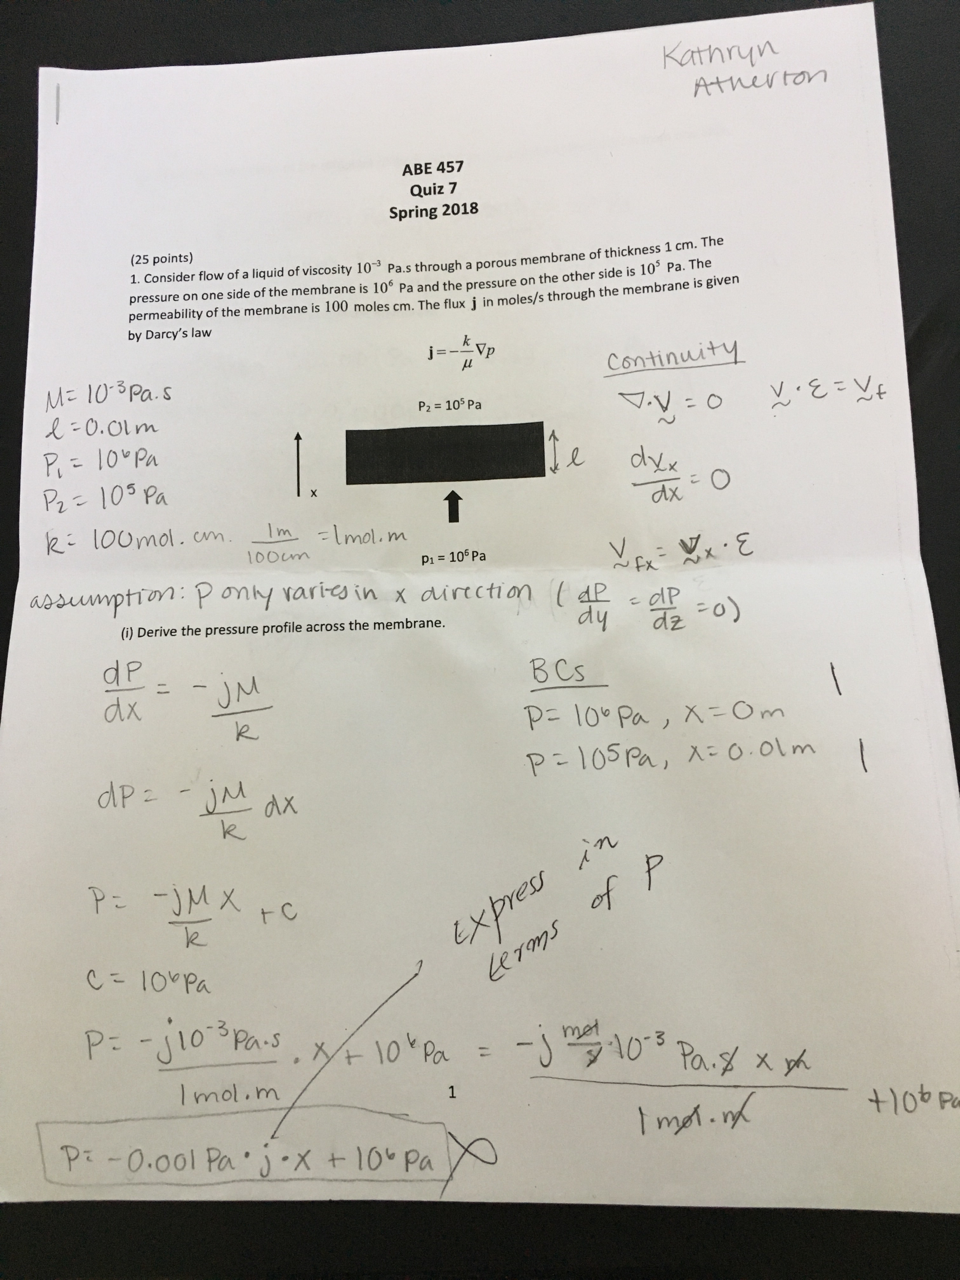 Kathryn
Atherton
ABE 457
Quiz 7
Spring 2018
(25 points)
1. Consider flow of a liquid of viscosity 10⁻³ Pa.s through a porous membrane of thickness 1 cm. The
pressure on one side of the membrane is 10⁶ Pa and the pressure on the other side is 10⁵ Pa. The
permeability of the membrane is 100 moles cm. The flux j in moles/s through the membrane is given
by Darcy's law
j=-k/μ ∇p
M= 10⁻³ Pa.s
l = 0.01m
P₁ = 10⁶ Pa
P₂ = 10⁵ Pa
k= 100mol.cm. 1m/100cm = 1mol.m
P₂ = 10⁵ Pa
x
l
p₁ = 10⁶ Pa
Continuity
∇·V = 0 V·ε = Vf
dVx/dx = 0
Vfx = Vx·ε
assumption: P only varies in x direction (dP/dy = dP/dz = 0)
(i) Derive the pressure profile across the membrane.
dP/dx = -jM/k
dP = -jM/k dx
P= -jM/k x + C
C = 10⁶ Pa
BCs
P= 10⁶ Pa, x=0m
P=10⁵ Pa, x=0.01m
express in
terms of P
P= -j10⁻³Pa.s/1mol.m · x + 10⁶ Pa = -j mol/s·10⁻³ Pa.s x m/1mol.m +10⁶ Pa
1
P= -0.001 Pa·j·x + 10⁶ Pa